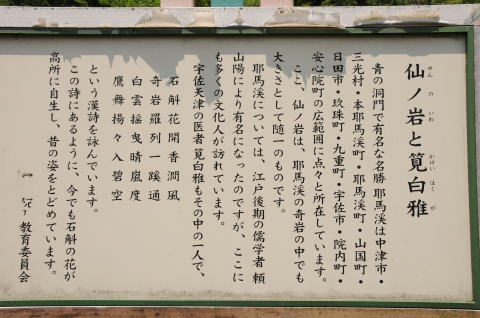 仙ノ岩と筧白雅
せん の いわ かけい はく が
青の洞門で有名な名勝耶馬溪は中津市・
三光村・本耶馬溪町・耶馬溪町・山国町・
日田市・玖珠町・九重町・宇佐市・院内町・
安心院町の広範囲に点々と所在しています。
ここ、仙ノ岩は、耶馬溪の奇岩の中でも
大きさとして随一のものです。
耶馬溪については、江戸後期の儒学者 頼
山陽により有名になったのですが、ここに
も多くの文化人が訪れています。
宇佐天津の医者筧白雅もその中の一人で、
石斛花開香澗風
奇岩羅列一蹊通
白雲揺曳晴嵐度
鷹舞揚々入碧空
という漢詩を詠んでいます。
この詩にあるように、今でも石斛の花が
高所に自生し、昔の姿をとどめています。
教育委員会